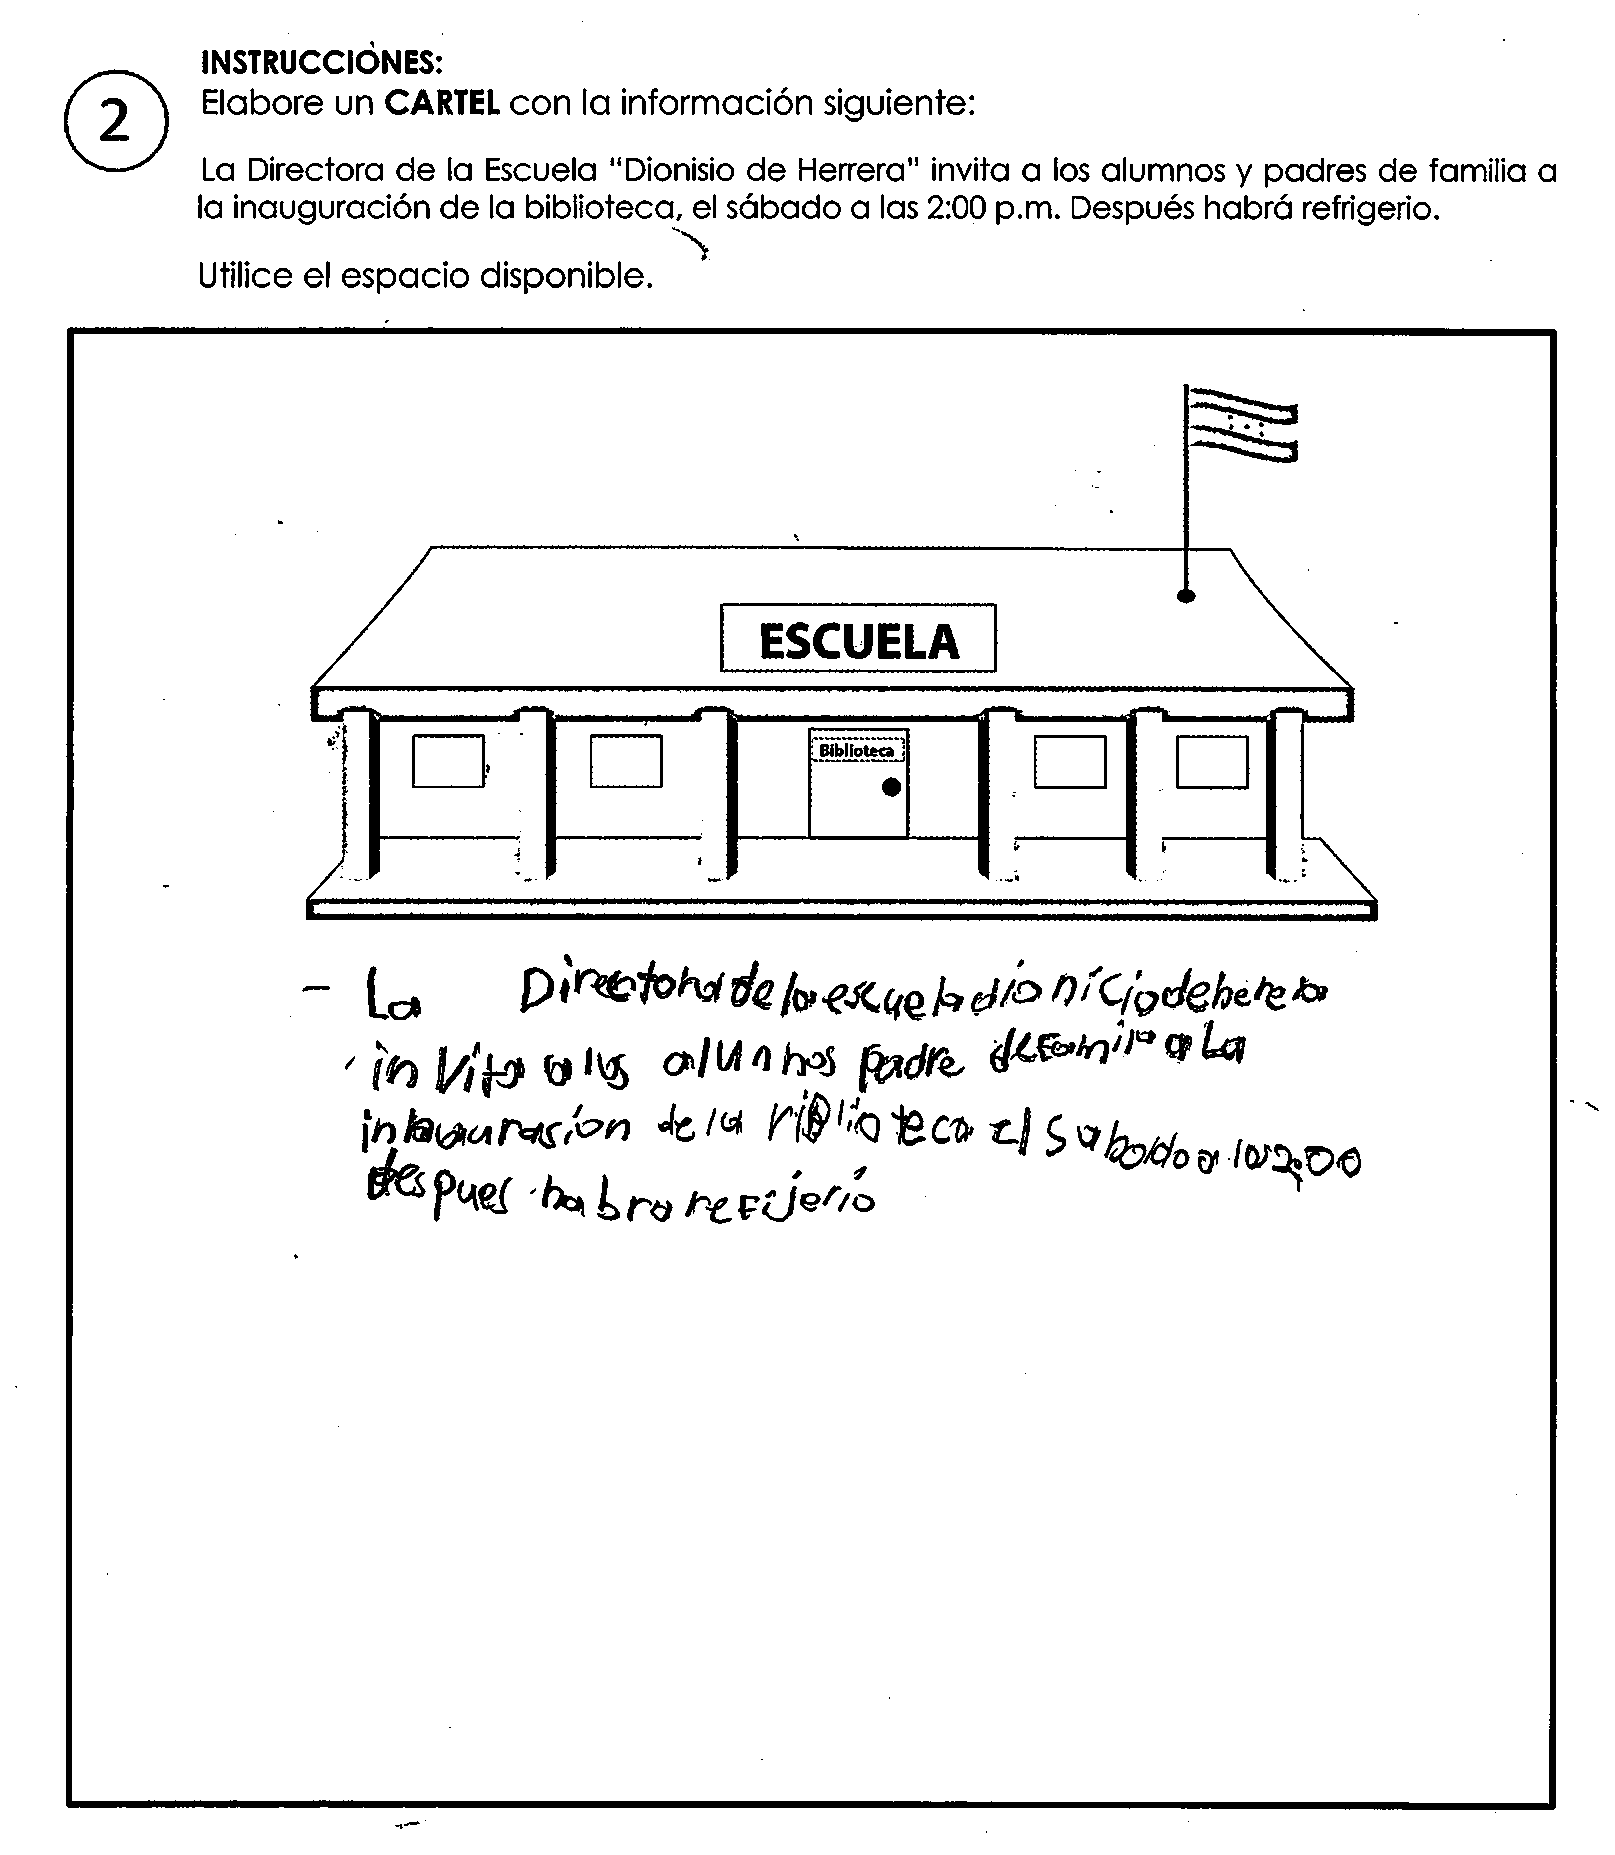 INSTRUCCIONES:
2
Elabore un CARTEL con la información siguiente:
La Directora de la Escuela "Dionisio de Herrera" invita a los alumnos y padres de familia a
la inauguración de la biblioteca, el sábado a las 2:00 p.m. Después habrá refrigerio.
Utilice el espacio disponible.
ESCUELA
Biblioteca
- La Directora de la escuela dionicio de herera
invita a los alunnos padre de familia a La
inaurasion de la riblioteca el sabado a las 2:00
despues habra refijerio